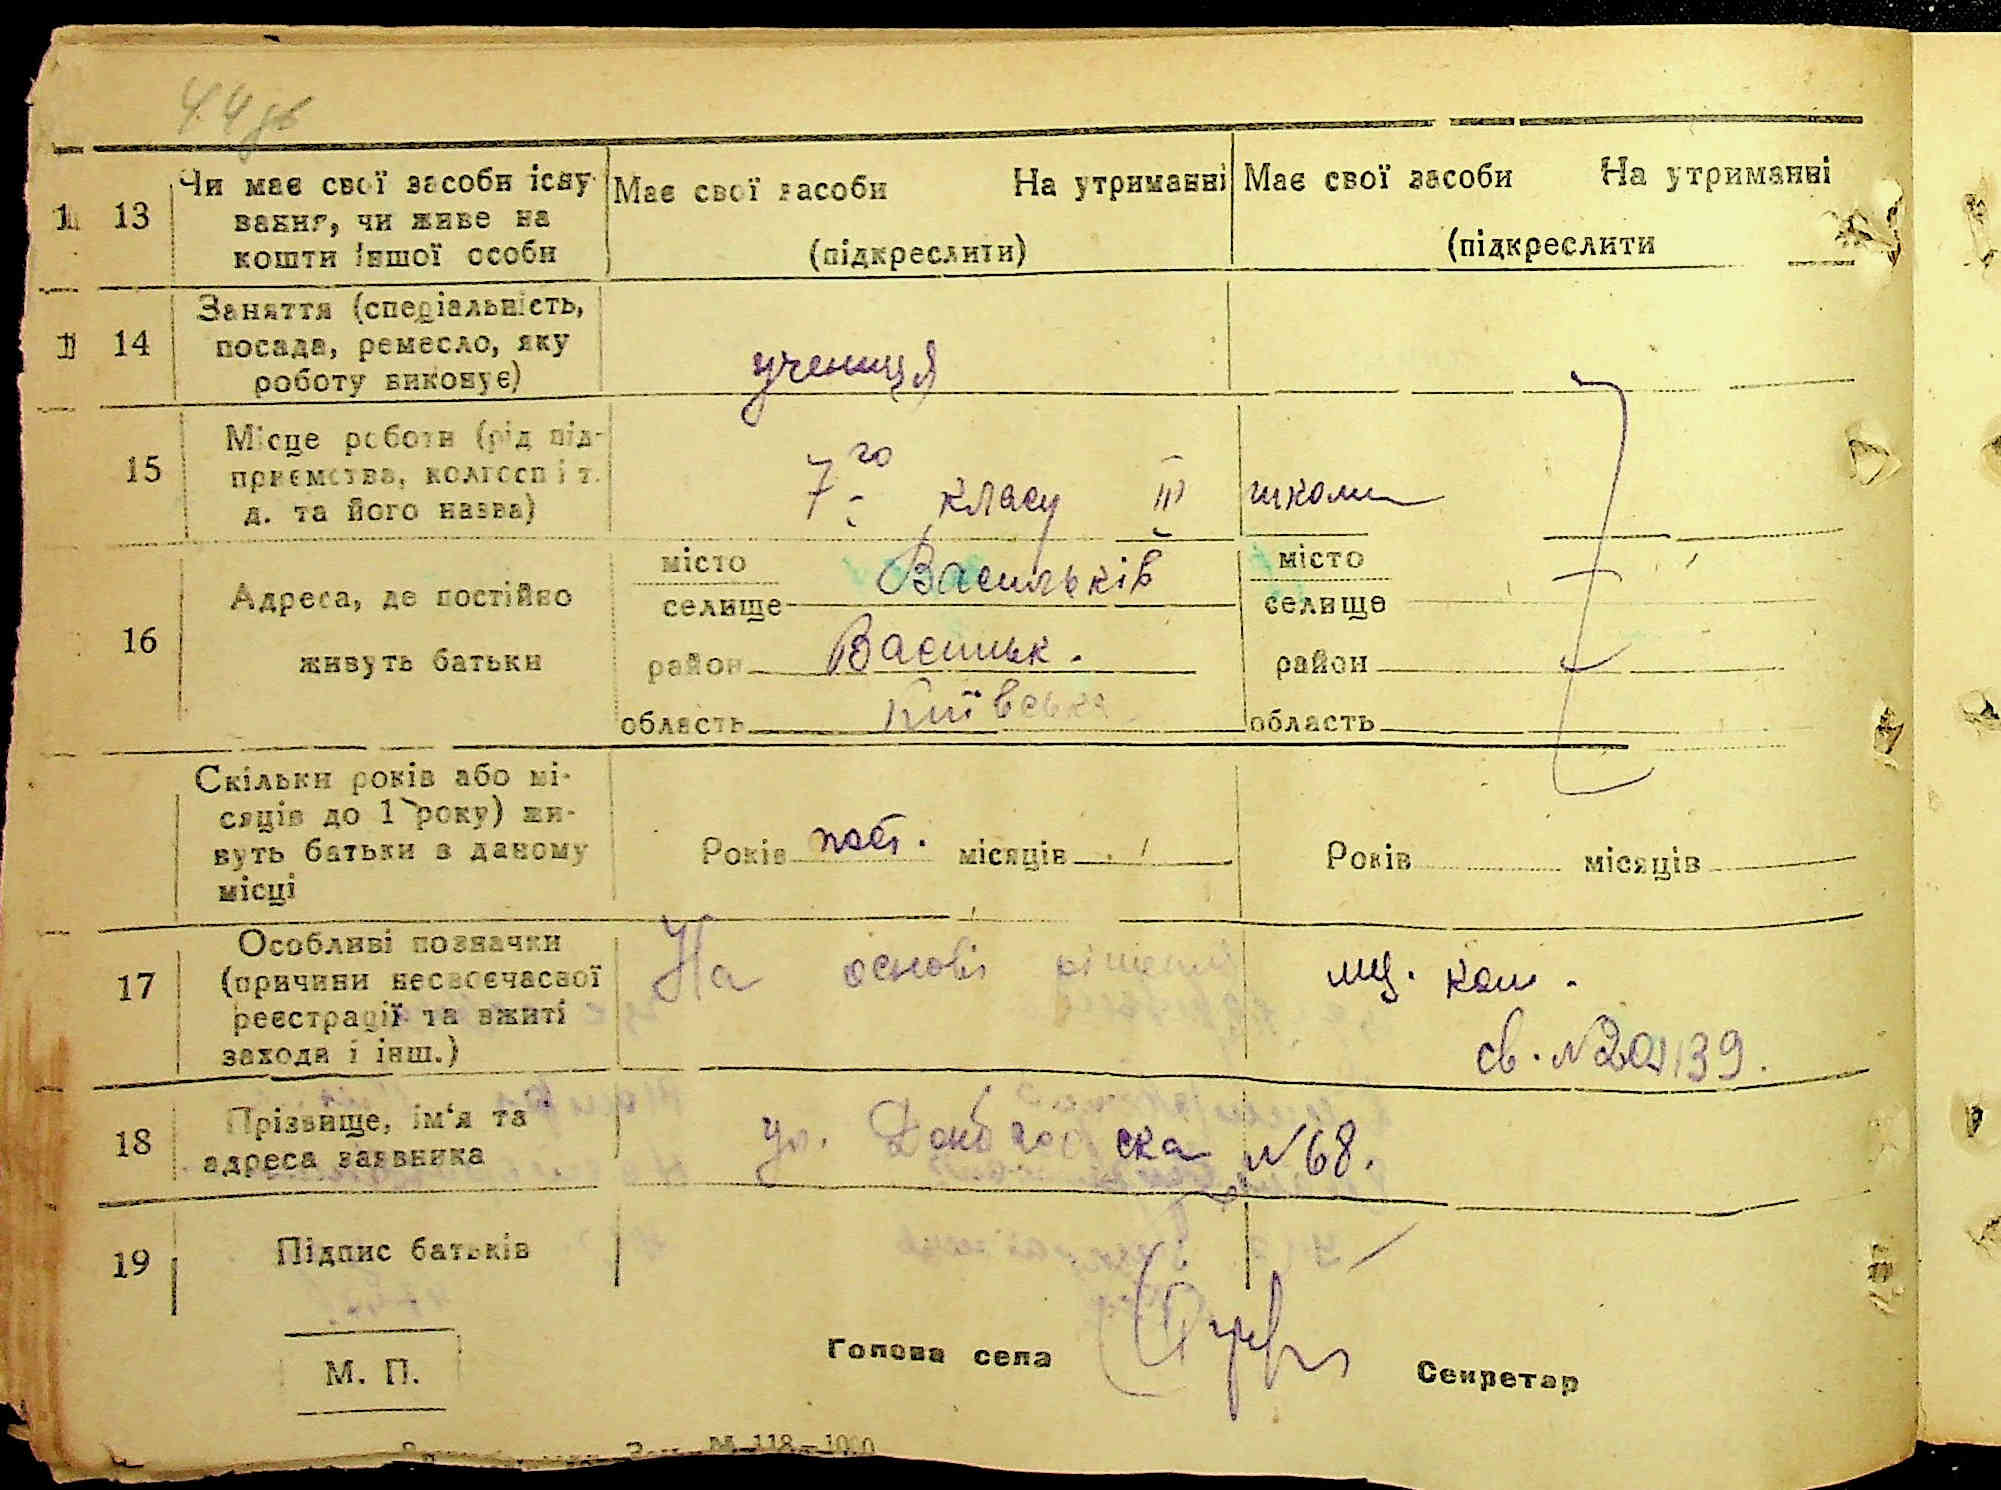 44
13 Чи має свої засоби існу-
вання, чи живе на
кошти іншої особи
Має свої засоби На утриманні
(підкреслити)
Має свої засоби На утриманні
(підкреслити
14 Заняття (спеціальність,
посада, ремесло, яку
роботу виконує)
учениця
15 Місце роботи (рід під-
приємства, колгосп і т.
д. та його назва)
7го класу III школи
16 Адреса, де постійно
живуть батьки
місто
селище Васильків
район Васильк.
область Київська
місто
селище
район
область
Скільки років або мі-
сяців до 1 року) жи-
вуть батьки в даному
місці
Років пост. місяців
Років місяців
17 Особливі позначки
(причини несвоєчасної
реєстрації та вжиті
заходи і інш.)
На основі мц. ком.
св. №
18 Прізвище, ім'я та
адреса заявника
ул. №68.
19 Підпис батьків
М. П.
Голова села Секретар
Зам. № 118—1000